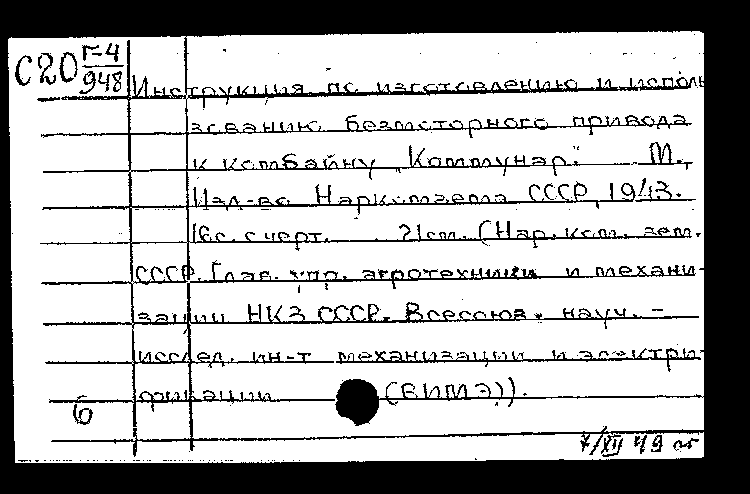 С20 Г-4
948
Инструкция по изготовлению и исполь
зованию безмоторного привода
к комбайну „Коммунар". М.,
Изд-во Наркомзема СССР, 1943.
16с. с черт. 21см. (Нар. ком. зем.
СССР. Глав. упр. агротехники и механи-
зации НКЗ СССР. Всесоюз. науч. -
исслед. ин-т механизации и электри-
фикации (ВИМЭ)).
6
/XII 49